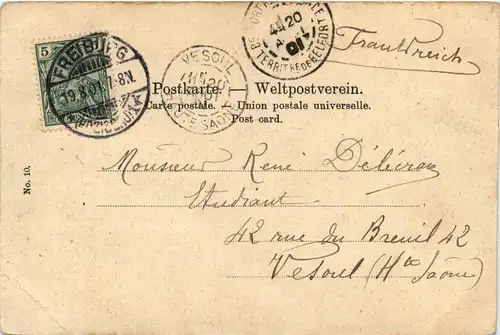 5
FREIBURG
19.8.01
VESOUL
HTE SAONE
TERRIT RE DE BELFORT
4E 20
01
Frankreich
Postkarte. Weltpostverein.
Carte postale. Union postale universelle.
Post card.
No. 10.
Monsieur René
Etudiant
42 rue du Breuil 42
Vesoul (Hte Saône)